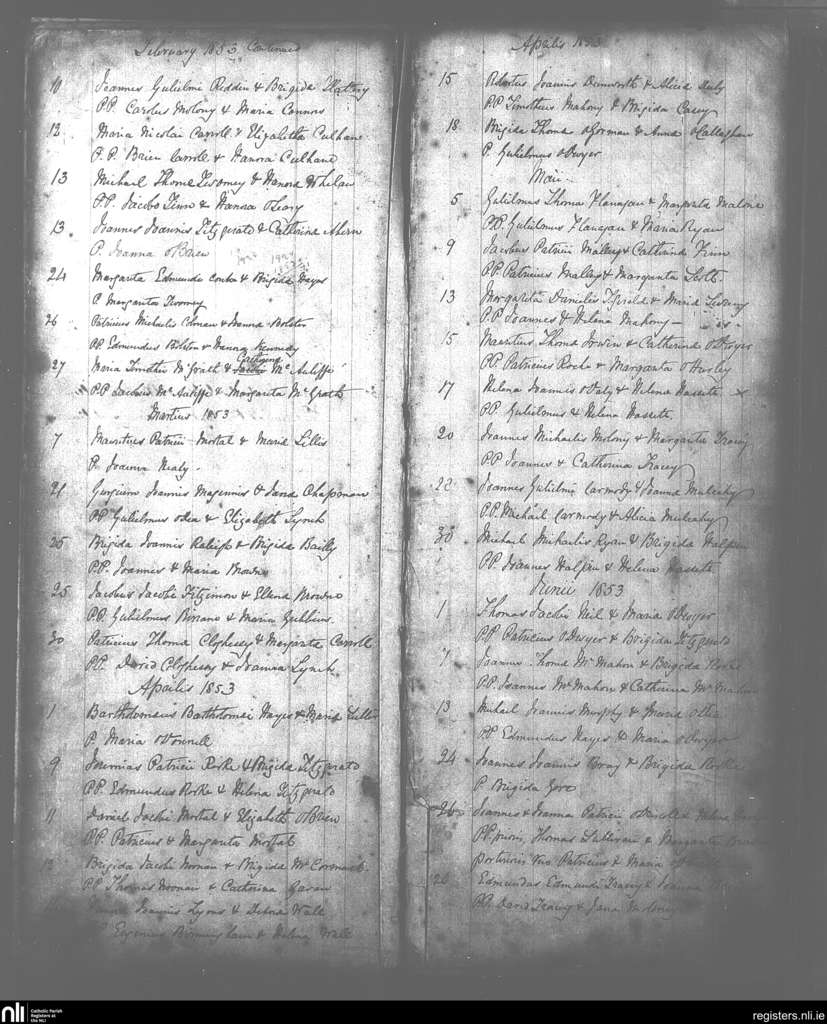 February 1853 Continued
10 Joannes Gulielmi Reddin & Brigida Slattery
PP. Carolus Molony & Maria Connors
12 Maria Nicolai Carroll & Elizabetha Culhane
P.P. Brien Carroll & Hanora Culhane
13 Michael Thomæ Twomey & Hanora Whelan
PP. Jacobus Finn & Hanna O'Leary
13. Joannes Joannis Fitzgerald & Catherina Ahern
P. Joanna O'Brien
24 Margarita Edmundi & Brigida Hayes
P Margarita Twomey
26 Patricius Michaelis & Hanna Bolster
PP Edmundus Bolster & Hanna Kennedy
Catherina
27 Maria Timothei McGrath & Mc Auliffe
P.P. Jacobus Mc Auliffe & Margarita Mc Grath
Martius 1853
7 Mauritius Patricii Mortal & Maria Lillis
P. Joanna Healy.
21 Joannis Magennis & Jana Chapman
PP. Gulielmus O'Dea & Elizabeth Lynch
25 Brigida Joannis Raleigh & Brigida Bailly
P.P. Joannes & Maria Brown
25 Jacobus Jacobi Fitzsimon & Ellena Browne
P.P. Gulielmus & Maria Gubbins
30 Patricius Thomæ Cloghessy & Margarita Carroll
PP. David Cloghessy & Joanna Lynch
Aprilis 1853
1 Bartholomæus Bartholomæi Hayes & Maria
P. Maria O'Donnell
9 Jeremias Patricii Rorke & Brigida Fitzgerald
PP. Edmundus Rorke & Helena Fitzgerald
11 Daniel Jacobi Mortal & Elizabeth O'Brien
PP. Patricius & Margarita Mortal
13 Brigida Jacobi Noonan & Brigida McCormack
PP Thomas Noonan & Catherina Garan
Joannis Lyons & Debora Wall
PP Eugenius Birmingham & Helena Wall
Aprilis 1853
15 Robertus Joannis Dunworth & Alicia Daly
P.P. Timotheus Mahony & Brigida Casey
18. Brigida Thomæ O'Gorman & Anna O'Callaghan
P. Gulielmus O'Dwyer
Maii
5 Gulielmus Thomæ Flanagan & Margarita Malone
P.P. Gulielmus Flanagan & Maria Ryan
9 Jacobus Patricii Mallay & Catherina Finn
PP. Patricius Mallay & Margarita Scott
13 Margarita Danielis & Maria
P.P. Joannes & Helena Mahony
15 Mauritius Thomæ Irwin & Catherina O'Dwyer
PP. Patricius Roche & Margarita O'Hurley
17 Helena Joannis O'Daly & Helena Hassett
PP. Gulielmus & Helena Hassett
20 Joannes Michaelis Molony & Margarita Tracey
P.P. Joannes & Catherina Tracey
22 Joannes Gulielmi Carmody & Joanna Mulcahy
P.P. Michael Carmody & Alicia Mulcahy
30 Michael Michaelis Ryan & Brigida Halpin
PP. Joannes Halpin & Helena Hassett
Junii 1853
1 Thomas Jacobi Neil & Maria O'Dwyer
PP Patricius O'Dwyer & Brigida Fitzgerald
7 Joannes Thomæ Mc Mahon & Brigida
P.P. Joannes Mc Mahon & Catherina Mc Mahon
13 Michael Joannis Murphy & Maria O'Dea
PP Edmundus Hayes & Maria O'Dwyer
24 Joannes Joannis & Brigida
P. Brigida Gore
26 Joannes & Joanna Patricii O'Driscoll & Helena
PP. prioris, Thomas Sullivan & Margarita
posterioris vero Patricius & Maria
26 Edmundus Edmundi Tracey & Joanna
PP. David Tracey & Jana
nli
Catholic Parish
Registers at
the NLI
registers.nli.ie